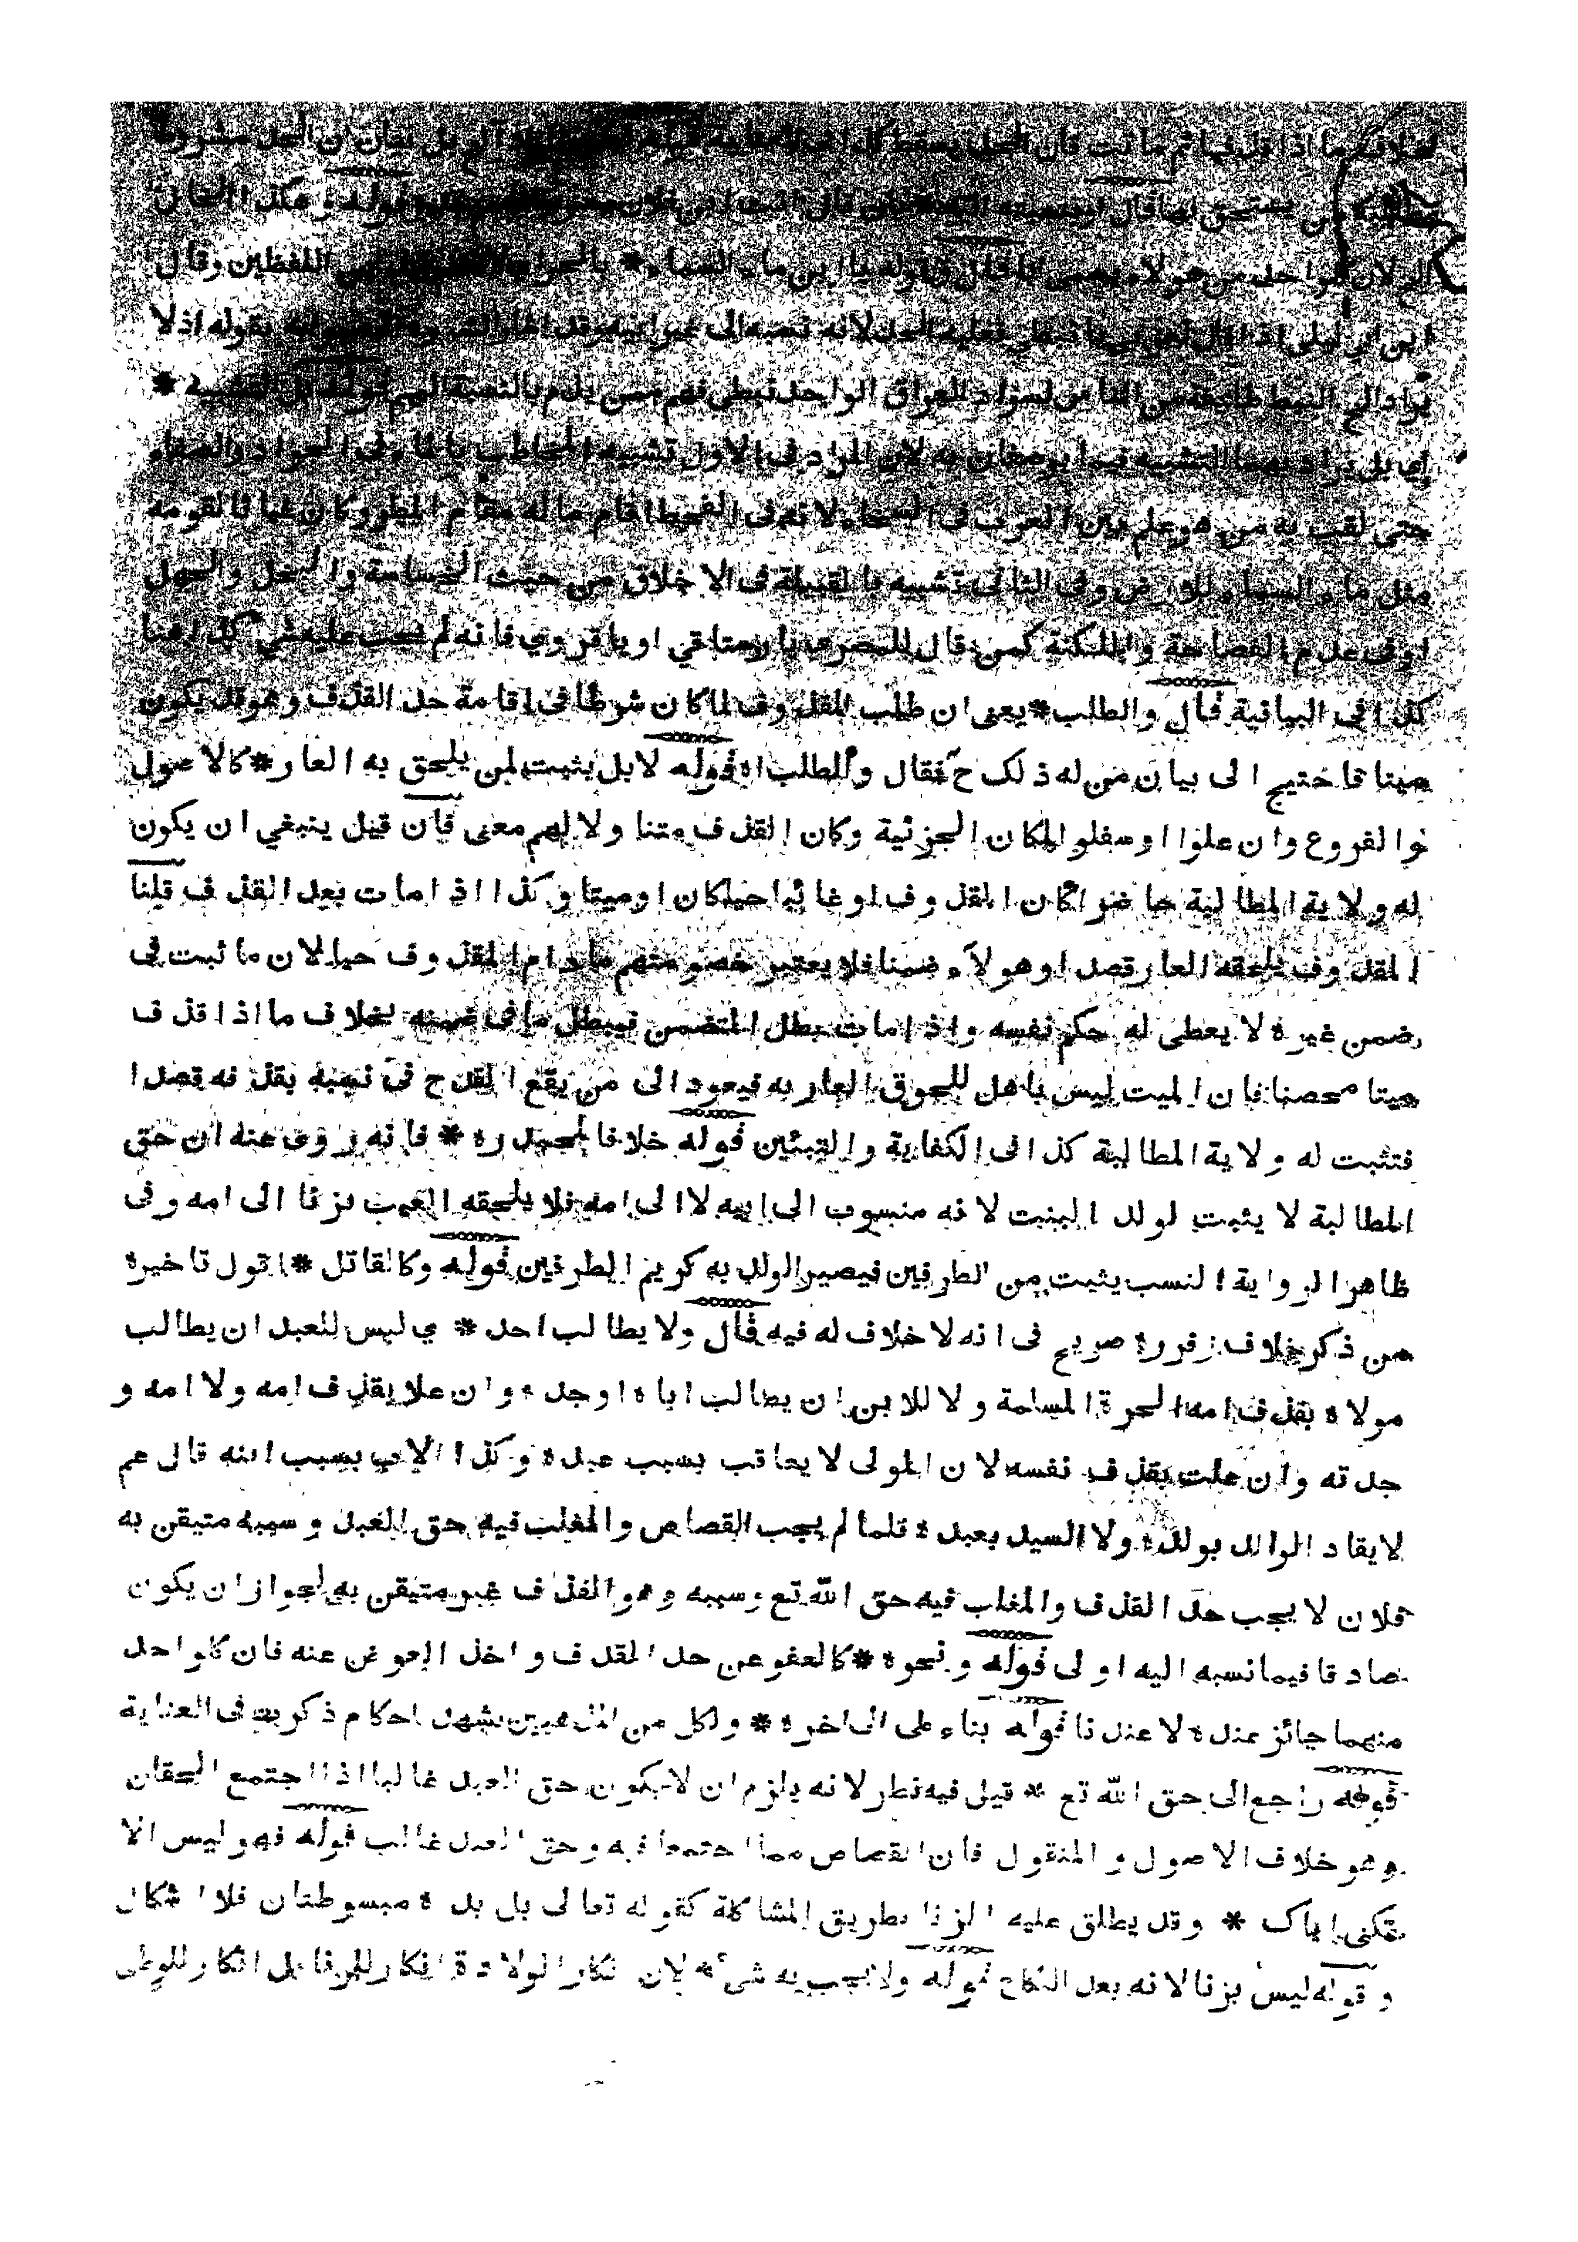 بخلاف ما اذا قذفها ثم ماتت فان الحد يسقط
من يستحق
لواحد من هؤلاء قوله يا ابن ماء السماء * اللفظين وقال
ابن ابي ليلى اذا قال فعليه الحد لانه نسبه الى غير ابيه وقد اشار بقوله اذ لا
يراد النبط طائفة من الناس لسواد العراق الواحد نبطي فهم ممن يذم بالنسبة اليهم قوله بل التشبيه *
اي بل يراد بهما التشبيه فيما يوصفان به لان المراد في الاول تشبيه المخاطب بالماء في الجواد والصفاء
حتى لقب به من هو علم بين العرب في السخاء لانه في القحط اقام ماله مقام المطر وكان غياثا لقومه
مثل ماء السماء للارض وفي الثاني تشبيه بالقبيلة في الاخلاق من حيث الخساسة والبخل والجهل
او في عدم الفصاحة والملكنة كمن قال للمصري يا رستاقي او يا قروي فانه لم يجب عليه شيء كذا هنا
كذا في البيانية قال والطلب * يعني ان طلب المقذوف لما كان شرطا في اقامة حد القذف وهو قد يكون
ميتا فاحتيج الى بيان من له ذلك ح فقال والمطلب اه قوله لا بل يثبت لمن يلحق به العار * كالاصول
والفروع وان علوا او سفلوا لمكان الجزئية وكان القذف متنا ولا لهم معنى فان قيل ينبغي ان يكون
له ولاية المطالبة حاضرا كان المقذوف او غائبا حيا كان او ميتا وكذا اذا مات بعد القذف قلنا
المقذوف يلحقه العار قصدا وهولآء ضمنا فلا يعتبر خصومتهم ما دام المقذوف حيا لان ما ثبت في
ضمن غيره لا يعطى له حكم نفسه واذا مات بطل المتضمن فيبطل ما في ضمنه بخلاف ما اذا قذف
ميتا محصنا فان الميت ليس باهل للحوق العار به فيعود الى من يقع القدح في نسبه بقذفه قصدا
فتثبت له ولاية المطالبة كذا في الكفاية والتبئين قوله خلافا لمحمد ره * فانه روى عنه ان حق
المطالبة لا يثبت لولد البنت لانه منسوب الى ابيه لا الى امه فلا يلحقه العيب بزنا الى امه وفي
ظاهر الرواية النسب يثبت من الطرفين فيصير الولد به كريم الطرفين قوله وكالقاتل * اقول تاخيره
من ذكر خلاف زفر ره صريح في انه لا خلاف له فيه قال ولا يطالب احد * ي ليس للعبد ان يطالب
مولاه بقذف امه الحرة المسلمة ولا للابن ان يطالب اباه او جده وان علا بقذف امه ولا امه و
جدته وان علت بقذف نفسه لان المولى لا يعاقب بسبب عبده وكذا الاب بسبب ابنه قال عم
لا يقاد الوالد بولده ولا السيد بعبده قلما لم يجب القصاص والمغلب فيه حق العبد وسببه متيقن به
فلان لا يجب حد القذف والمغلب فيه حق الله تع وسببه وهو القذف غير متيقن به لجواز ان يكون
صادقا فيما نسبه اليه اولى قوله ونحوه * كالعفو عن حد المقذف واخذ العوض عنه فان كلواحد
منهما جائز عنده لا عندنا قوله بناء على الى اخره * ولكل من المذهبين يشهد احكام ذكرت في العناية
قوله راجع الى حق الله تع * قيل فيه نظر لانه يلزم ان لا يكون حق العبد غالبا اذا اجتمع الحقان
وهو خلاف الاصول والمنقول فان القصاص مما اجتمعا فيه وحق العبد غالب قوله فهو ليس الا
تمكني اياك * وقد يطلق عليه الزنا بطريق المشاكلة كقوله تعالى بل يده مبسوطتان فلا اشكال
وقوله ليس بزنا لانه بعد النكاح قوله ولا يجب به شيء * لان نكار الولادة انكار للزنا بل انكار للوطي